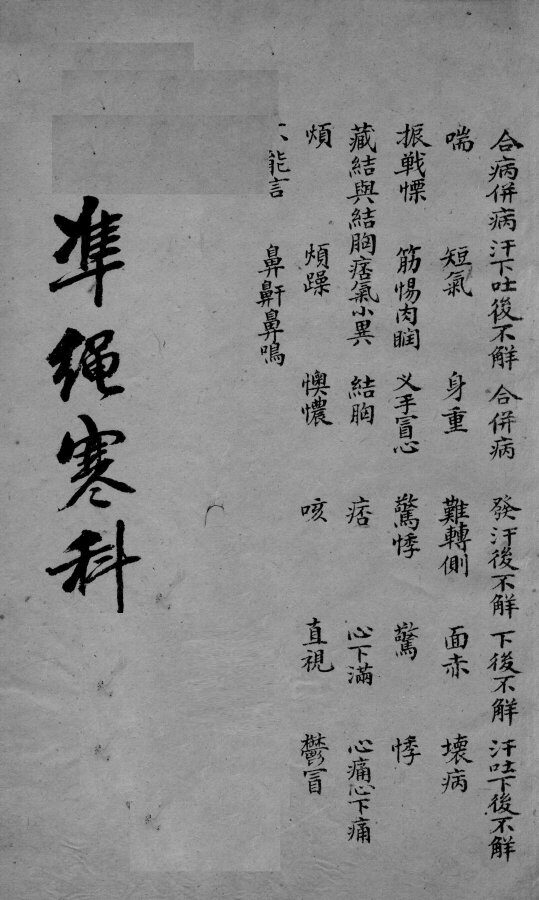 合病併病 汗下吐後不解 合併病 發汗後不解 下後不解 汗吐下後不解
喘 短氣 身重 難轉側 面赤 壞病
振戰慄 筋惕肉瞤 叉手冒心 驚悸 驚 悸
藏結與結胸痞氣小異 結胸 痞 心下滿 心痛心下痛
煩 煩躁 懊憹 咳 直視 鬱冒
能言 鼻鼾鼻鳴
準繩寒科